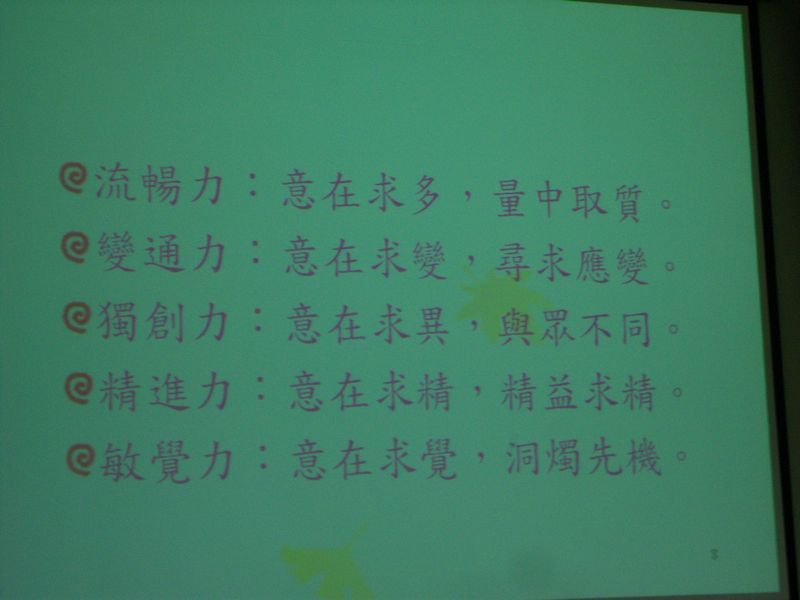 流暢力：意在求多，量中取質。
變通力：意在求變，尋求應變。
獨創力：意在求異，與眾不同。
精進力：意在求精，精益求精。
敏覺力：意在求覺，洞燭先機。
8